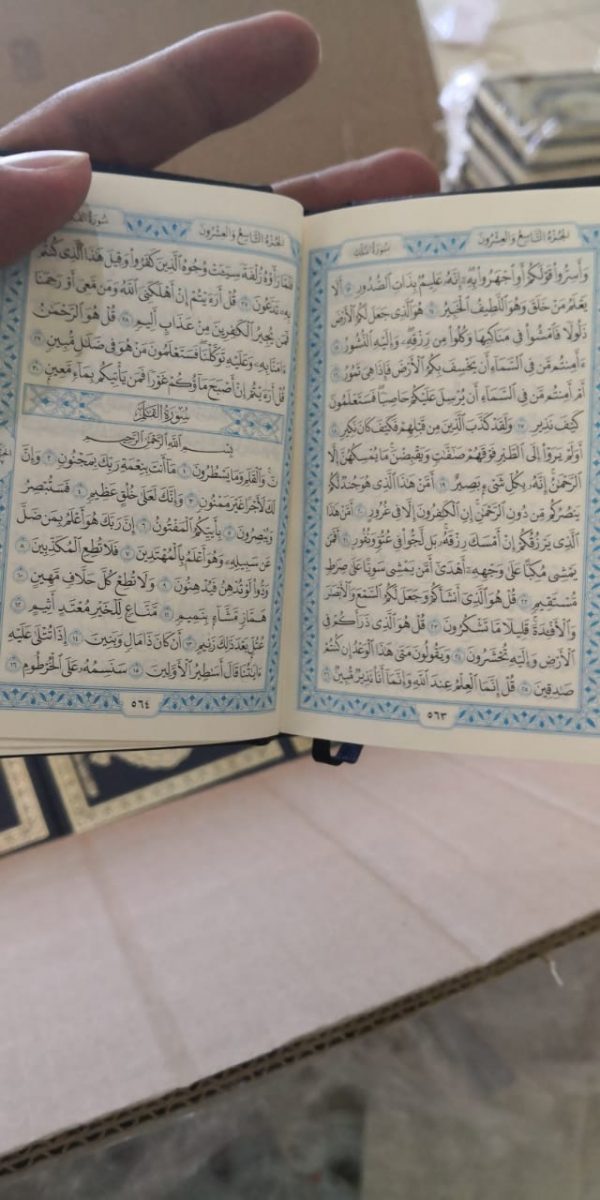 الجُزْءُ التَّاسِعُ وَالعِشْرُونَ
سُورَةُ المُلْكِ
وَأَسِرُّوا۟ قَوْلَكُمْ أَوِ ٱجْهَرُوا۟ بِهِۦٓ إِنَّهُۥ عَلِيمٌۢ بِذَاتِ ٱلصُّدُورِ ١٣ أَلَا
يَعْلَمُ مَنْ خَلَقَ وَهُوَ ٱللَّطِيفُ ٱلْخَبِيرُ ١٤ هُوَ ٱلَّذِى جَعَلَ لَكُمُ ٱلْأَرْضَ
ذَلُولًا فَٱمْشُوا۟ فِى مَنَاكِبِهَا وَكُلُوا۟ مِن رِّزْقِهِۦ وَإِلَيْهِ ٱلنُّشُورُ ١٥
ءَأَمِنتُم مَّن فِى ٱلسَّمَآءِ أَن يَخْسِفَ بِكُمُ ٱلْأَرْضَ فَإِذَا هِىَ تَمُورُ ١٦
أَمْ أَمِنتُم مَّن فِى ٱلسَّمَآءِ أَن يُرْسِلَ عَلَيْكُمْ حَاصِبًا فَسَتَعْلَمُونَ
كَيْفَ نَذِيرِ ١٧ وَلَقَدْ كَذَّبَ ٱلَّذِينَ مِن قَبْلِهِمْ فَكَيْفَ كَانَ نَكِيرِ ١٨
أَوَلَمْ يَرَوْا۟ إِلَى ٱلطَّيْرِ فَوْقَهُمْ صَٰٓفَّٰتٍ وَيَقْبِضْنَ مَا يُمْسِكُهُنَّ إِلَّا
ٱلرَّحْمَٰنُ إِنَّهُۥ بِكُلِّ شَىْءٍۭ بَصِيرٌ ١٩ أَمَّنْ هَٰذَا ٱلَّذِى هُوَ جُندٌ لَّكُمْ
يَنصُرُكُم مِّن دُونِ ٱلرَّحْمَٰنِ إِنِ ٱلْكَٰفِرُونَ إِلَّا فِى غُرُورٍ ٢٠ أَمَّنْ هَٰذَا
ٱلَّذِى يَرْزُقُكُمْ إِنْ أَمْسَكَ رِزْقَهُۥ بَل لَّجُّوا۟ فِى عُتُوٍّ وَنُفُورٍ ٢١ أَفَمَن
يَمْشِى مُكِبًّا عَلَىٰ وَجْهِهِۦٓ أَهْدَىٰٓ أَمَّن يَمْشِى سَوِيًّا عَلَىٰ صِرَٰطٍ
مُّسْتَقِيمٍ ٢٢ قُلْ هُوَ ٱلَّذِىٓ أَنشَأَكُمْ وَجَعَلَ لَكُمُ ٱلسَّمْعَ وَٱلْأَبْصَٰرَ
وَٱلْأَفْـِٔدَةَ قَلِيلًا مَّا تَشْكُرُونَ ٢٣ قُلْ هُوَ ٱلَّذِى ذَرَأَكُمْ فِى
ٱلْأَرْضِ وَإِلَيْهِ تُحْشَرُونَ ٢٤ وَيَقُولُونَ مَتَىٰ هَٰذَا ٱلْوَعْدُ إِن كُنتُمْ
صَٰدِقِينَ ٢٥ قُلْ إِنَّمَا ٱلْعِلْمُ عِندَ ٱللَّهِ وَإِنَّمَآ أَنَا۠ نَذِيرٌ مُّبِينٌ ٢٦
٥٦٣
الجُزْءُ التَّاسِعُ وَالعِشْرُونَ
سُورَةُ
فَلَمَّا رَأَوْهُ زُلْفَةً سِيٓـَٔتْ وُجُوهُ ٱلَّذِينَ كَفَرُوا۟ وَقِيلَ هَٰذَا ٱلَّذِى كُنتُم
بِهِۦ تَدَّعُونَ ٢٧ قُلْ أَرَءَيْتُمْ إِنْ أَهْلَكَنِىَ ٱللَّهُ وَمَن مَّعِىَ أَوْ رَحِمَنَا
فَمَن يُجِيرُ ٱلْكَٰفِرِينَ مِنْ عَذَابٍ أَلِيمٍ ٢٨ قُلْ هُوَ ٱلرَّحْمَٰنُ
ءَامَنَّا بِهِۦ وَعَلَيْهِ تَوَكَّلْنَا فَسَتَعْلَمُونَ مَنْ هُوَ فِى ضَلَٰلٍ مُّبِينٍ ٢٩
قُلْ أَرَءَيْتُمْ إِنْ أَصْبَحَ مَآؤُكُمْ غَوْرًا فَمَن يَأْتِيكُم بِمَآءٍ مَّعِينٍۭ ٣٠
سُورَةُ القَلَمِ
بِسْمِ ٱللَّهِ ٱلرَّحْمَٰنِ ٱلرَّحِيمِ
نٓ وَٱلْقَلَمِ وَمَا يَسْطُرُونَ ١ مَآ أَنتَ بِنِعْمَةِ رَبِّكَ بِمَجْنُونٍ ٢ وَإِنَّ
لَكَ لَأَجْرًا غَيْرَ مَمْنُونٍ ٣ وَإِنَّكَ لَعَلَىٰ خُلُقٍ عَظِيمٍ ٤ فَسَتُبْصِرُ
وَيُبْصِرُونَ ٥ بِأَييِّكُمُ ٱلْمَفْتُونُ ٦ إِنَّ رَبَّكَ هُوَ أَعْلَمُ بِمَن ضَلَّ
عَن سَبِيلِهِۦ وَهُوَ أَعْلَمُ بِٱلْمُهْتَدِينَ ٧ فَلَا تُطِعِ ٱلْمُكَذِّبِينَ ٨
وَدُّوا۟ لَوْ تُدْهِنُ فَيُدْهِنُونَ ٩ وَلَا تُطِعْ كُلَّ حَلَّافٍ مَّهِينٍ ١٠
هَمَّازٍ مَّشَّآءٍۭ بِنَمِيمٍ ١١ مَّنَّاعٍ لِّلْخَيْرِ مُعْتَدٍ أَثِيمٍ ١٢
عُتُلٍّۭ بَعْدَ ذَٰلِكَ زَنِيمٍ ١٣ أَن كَانَ ذَا مَالٍ وَبَنِينَ ١٤ إِذَا تُتْلَىٰ عَلَيْهِ
ءَايَٰتُنَا قَالَ أَسَٰطِيرُ ٱلْأَوَّلِينَ ١٥ سَنَسِمُهُۥ عَلَى ٱلْخُرْطُومِ ١٦
٥٦٤